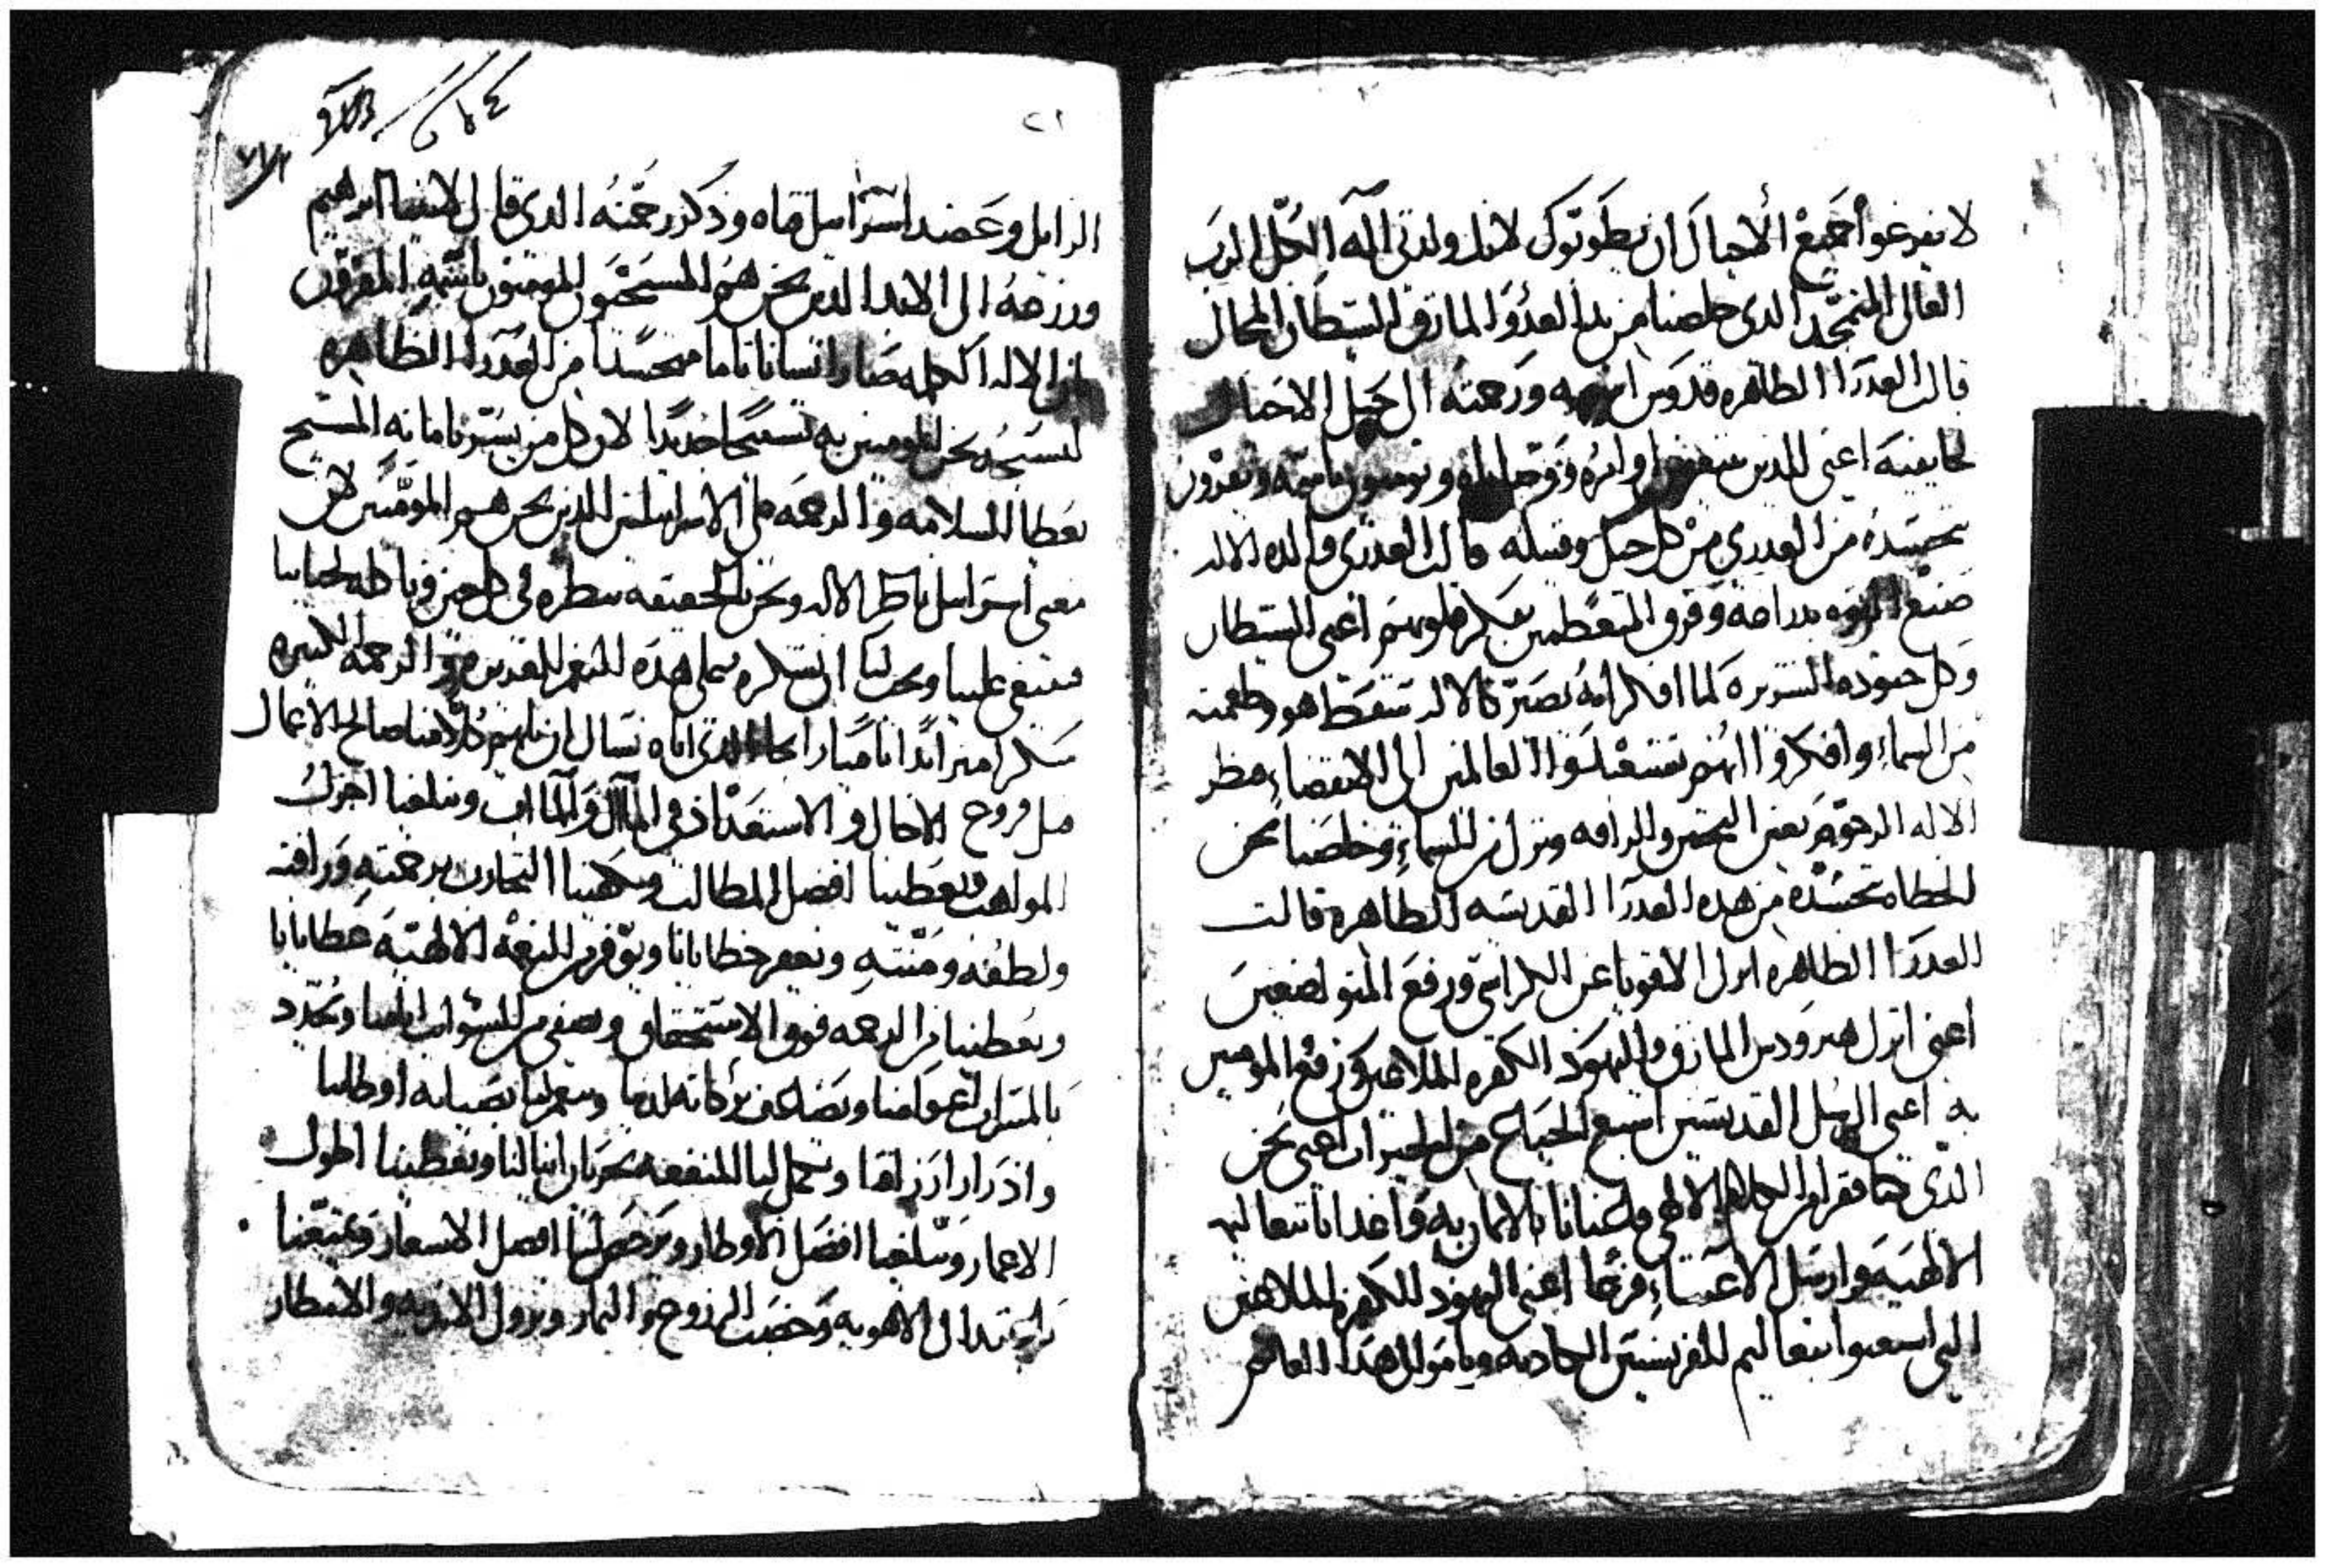 لا يفرغوا جميع الاجيال ان يطوبوك لانك ولدتي اله الكل الرب
العالي المتمجد الذي خلصنا من يد العدو المارق الشيطان المحال
قالت العدرا الطاهره قدوس اسمه ورحمته الى جيل الاجيال
لخايفيه اعني للدين اوامره ووصاياه ويومنون باسمه ويقرون
بتجسده من العدرى من كل جيل وقبيله قالت العدرى والده الاله
صنع القوه بدراعه وفرق المتعظمين بفكر قلوبهم اعني الشيطان
وكل جنوده الشريره لما افكر انه يصير كالاله سقط هو وطغمته
من السماء وافكروا انهم العالمين الى الانقضاء فنظر
الاله الرحوم بعين التحنن والرافه ونزل من السماء وخلصنا نحن
الخطاه بتجسده من هده العدرا القديسه الطاهره قالت
العدرا الطاهره انزل الاقويا عن الكراسي ورفع المتواضعين
اعني انزل هيرودس المارق واليهود الكفره الملاعين ورفع المومنين
به اعني الرسل القديسين اشبع الجياع من الخيرات اعني نحن
الذي كنا فقرا من الكلام الالهي فاغنانا بالايمان به واغدانا بتعاليمه
الالهيه وارسل الاغنياء فرغا اعني اليهود الكفره الملاعين
الدي اشبعوا بتعاليم الفريسيين الكادبه وباموال هدا العالم
٢١
الزايل وعضد اسراييل فتاه وذكر رحمته الدي قال لابينا ابراهيم
وزرعه الى الابد الدين نحن هم المسيحيون المومنون باسمه المقرون
بان الاله الكلمه صار انسانا تاما متجسدا من العدرا الطاهره
لنسبح نحن المومنين به تسبيحا جديدا لان كل من يستر بامانه المسيح
يعطا السلامه والرحمه على الاسراييلين الدين نحن هم المومنين لان
معنى اسراييل ناظر الاله ونحن بالحقيقه ننظره في كل حين
فينبغي علينا ويجب لنا ان نشكره على هده النعم الغديره والرحمه الكثيره
شكرا اياه نسال ان يلهم كلا منا صالح الاعمال
قبل فروغ الاجال والاستعداد في المال والماب ويبلغنا اجزل
المواهب ويعطينا افضل المطالب ويكفينا التجارب برحمته ورافته
ولطفه ومنته ويغفر خطايانا ويوفر من النعمه الالهيه عطايانا
ويعطينا من الرحمه فوق الاستحقاق ويصفي من الشوايب ايامنا ويجدد
بالمسرات اعوامنا ويضاعف بركاته لدينا ويعمر لنا بصيانه اوطاننا
وادرار ارزاقنا ويكمل لنا المنفعه بجريان نيلنا ويعطينا اطول
الاعمار ويبلغنا افضل الاوطار ويرخص لنا افضل الاسعار ويمتعنا
باعتدال الاهويه وخصب الزروع والثمار ونزول الانديه والامطار